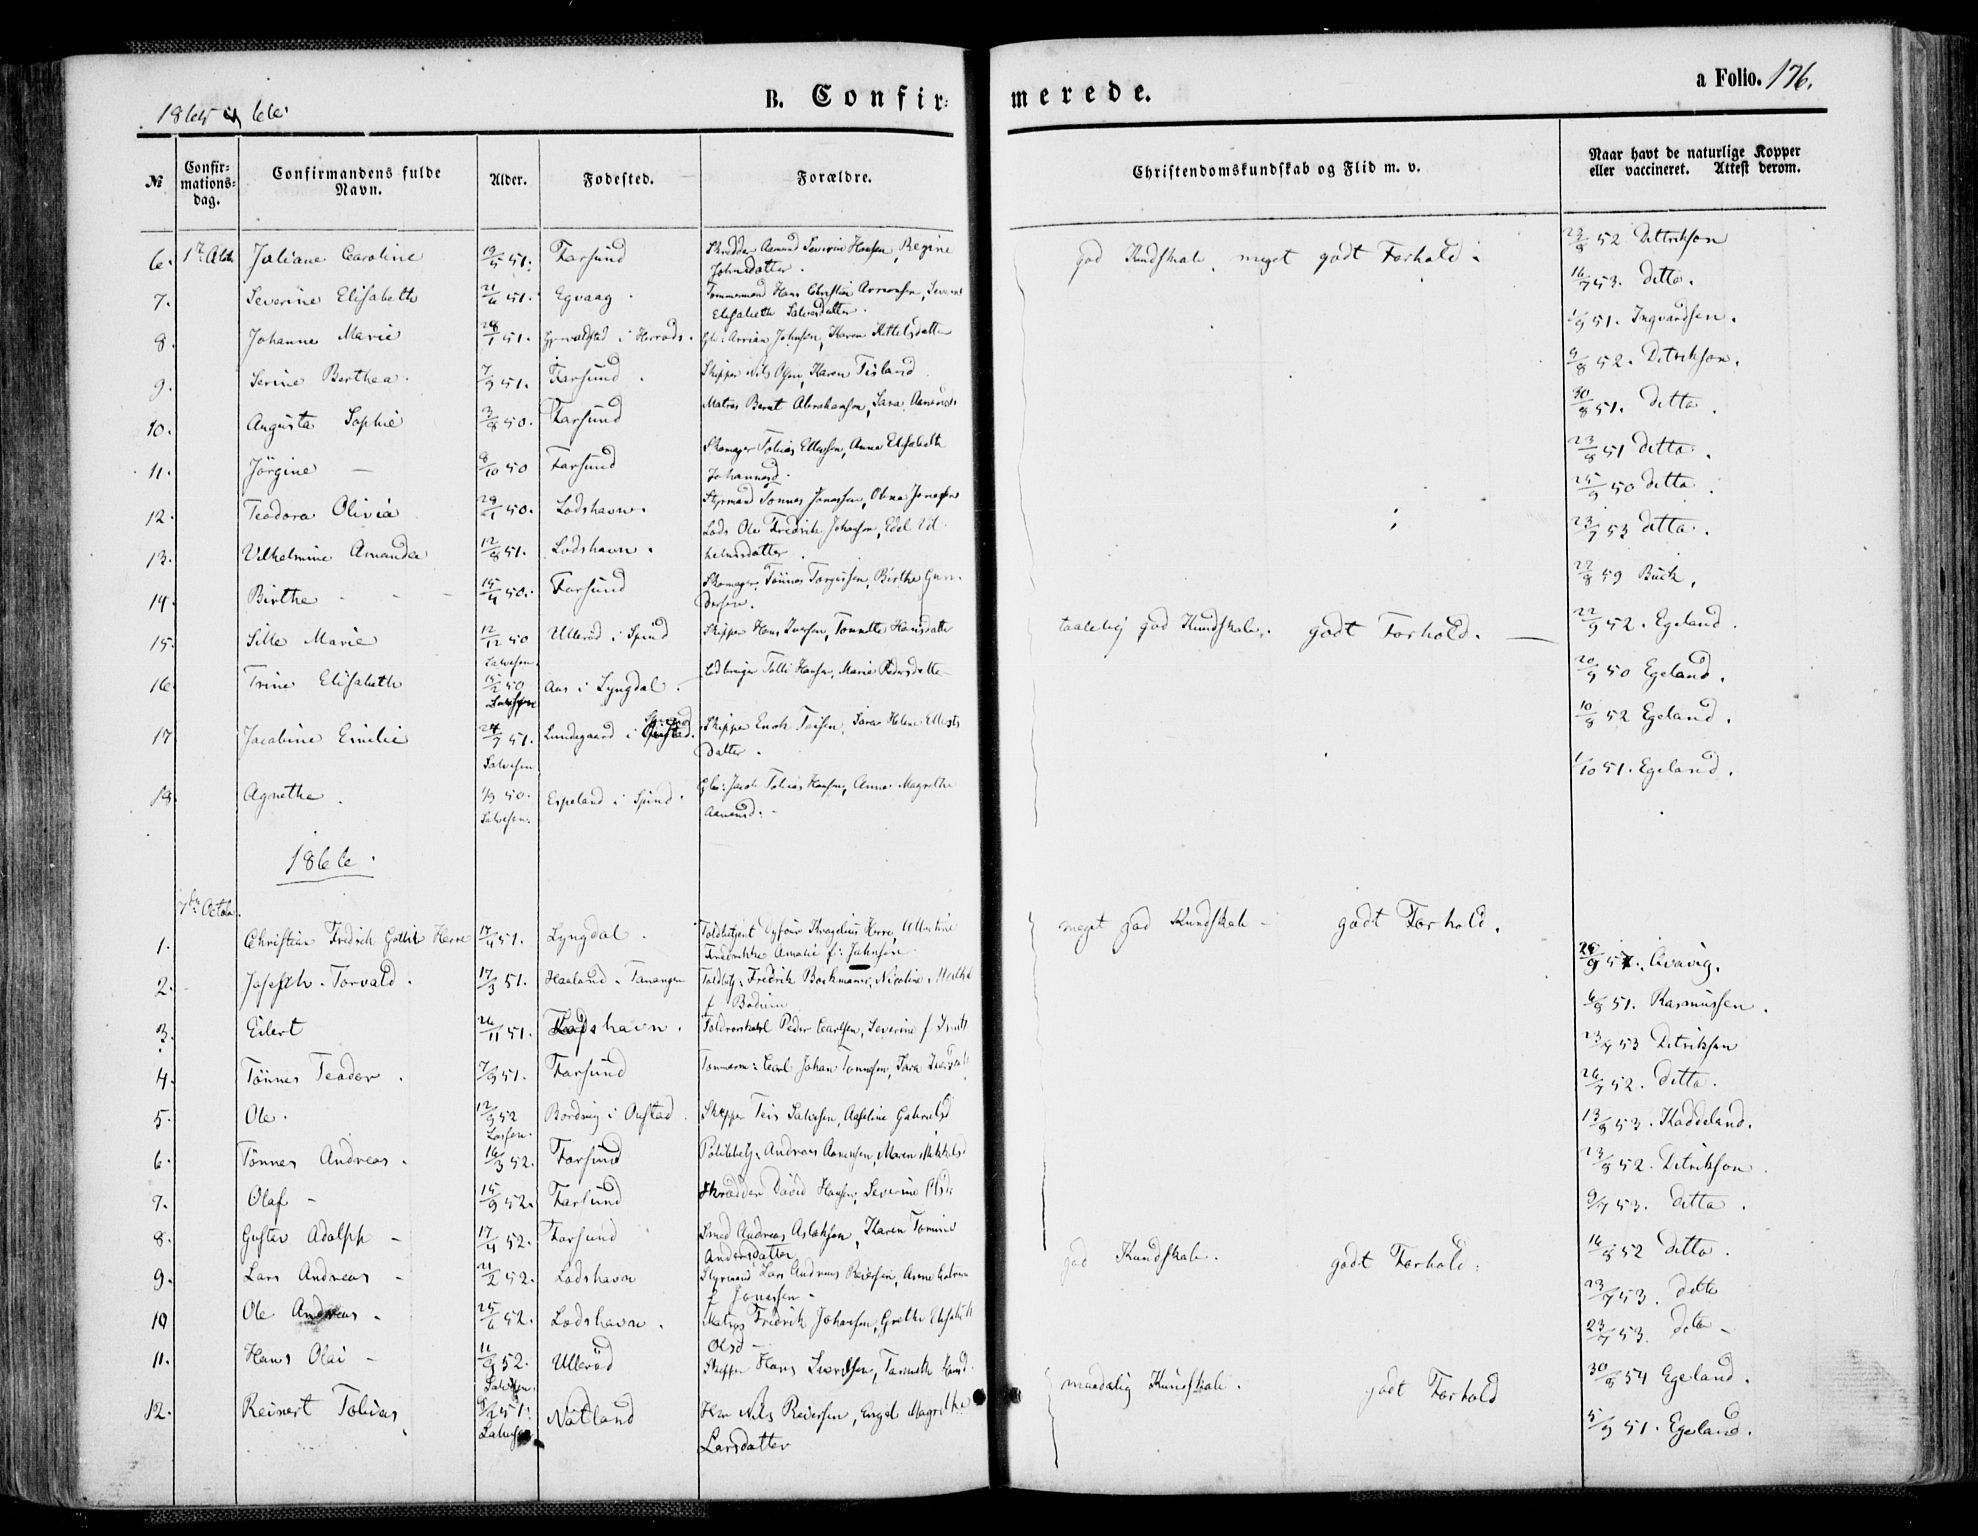 1865 og 66.
B. Confirmerede.
a Folio. 176.
№ Confirmationsdag. Confirmandens fulde Navn. Alder. Fødested. Forældre. Christendomskundskab og Flid m. v. Naar havt de naturlige Kopper eller vaccineret. Attest derom.
6. Juliane Caroline 19/5 51. Farsund Skrædder Aanund Severin Hansen, Regine Johnsdatter. god Kundskab, meget godt Forhold. 23/8 52 Ditrikson
7. Severine Elisabeth 21/6 51. Egvaag. Tømmermand Hans Christian Arronsen, Elisabeth Salvesdatter. 16/7 53. ditto.
8. Johanne Marie 28/1 51. i Herrads. Johnsen, Karen Kittelsdatter 1/9 51. Ingvardsen.
9. Serine Berthea. 7/9 51. Farsund. Skipper Nils Olsen, Karen Tisland 9/8 52. Ditrikson.
10. Augusta Sophie 3/8 50. Farsund Matros Bernt Abrahamsen, Sara 30/8 51. ditto.
11. Jörgine — 8/10 50 Farsund Skomager Tobias Ellefsen, Anna Elisabeth Johannesd. 23/8 51 ditto.
12. Teodora Olivia 29/1 50. Lodshavn. Styrmand Tönnes Jonassen, Olene Jonassen 25/9 50 ditto.
13. Vilhelmine Amanda 12/8 51. Lodshavn. Lods Ole Fredrik Johnsen, Edel Vilhelmsdatter. 23/7 53 ditto.
14. Birthe 15/4 50. Farsund Skomager Tönnes Torgersen, Birthe Gundersen. 22/8 59 Buch.
15. Sille Marie 12/12 50 Ulleröd i Spind Skipper Hans Iversen, Tonnette Hansdatter taalelig god Kundskab. godt Forhold. — 22/9 52. Egeland.
Salvesen.
16 Trine Elisabeth 15/2 50 Aas i Lyngdal. Tolli Hansen, Marie Pedersdatter 20/9 50 Egeland.
17 Jacobine Emilie 24/7 51. Lundegaard i Spind Skipper Enok Teisen, Sara Helene Ellertsdatter. 10/8 52 Egeland.
Salvesen
18 Agnethe. 1/9 50. Espeland i Spind. Jacob Tobias Hansen, Anna Magrethe Aanensd. 1/10 51. Egeland.
Salvesen.
1866.
7de Octobr.
1. Christian Fredrik Gottlib Herre 17/4 51. Lyngdal. Toldbetjent Herre, Albertine Fredrikke Amalie f: Jahnsen meget god Kundskab — godt Forhold.
2. Joseph Torvald. 17/3 51. Haaland Tananger Toldbetj: Fredrik Bockmann, Nicoline f Bodum 6/8 51. Rasmussen.
3. Eilert 26/11 51. Lodshavn. Peder Carlsen, Severine f 23/7 53 Ditriksen
4. Tönnes Teodor. 7/9 51. Farsund Tømmerm: Carl Johan Tonnesen, Sara 26/7 52. ditto.
5. Ole. 12/9 52 i Oustad. Skipper Teis Salvesen, Aaseline Gabrielsd 13/9 53. Haddeland.
6. Tönnes Andreas. 16/3 52. Farsund Politibetj: Andreas Aanensen, Maren Mikkelsd 23/8 52. Ditrikson.
7. Olaf — 15/9 52. Farsund Skrædder David Hansen, Severine Olsd: 9/7 53. ditto.
8. Gustav Adolph — 17/4 52. Farsund Smed Andreas Aslaksen, Karen Tomine Andersdatter 16/8 52 ditto.
9. Lars Andreas — 21/2 52. Lodshavn Styrmand Lars Andreas Reiersen, Anne f Jonassen — god Kundskab. godt Forhold. 23/7 53. ditto
10 Ole Andreas. 25/6 52. Lodshavn. Matros Fredrik Johansen, Grethe Elisabeth Olsd — 23/7 53. ditto —
11. Hans Olai — 11/9 52. Ulleröd Skipper Hans Iversen, Tonnette Hansd. 30/8 54 Egeland.
Salvesen.
12. Reinert Tobias, 51. Nötland Nils Reiersen, Engel Magrethe Larsdatter maadelig Kundskab. godt Forhold 5/9 51. Egeland.
Salvesen